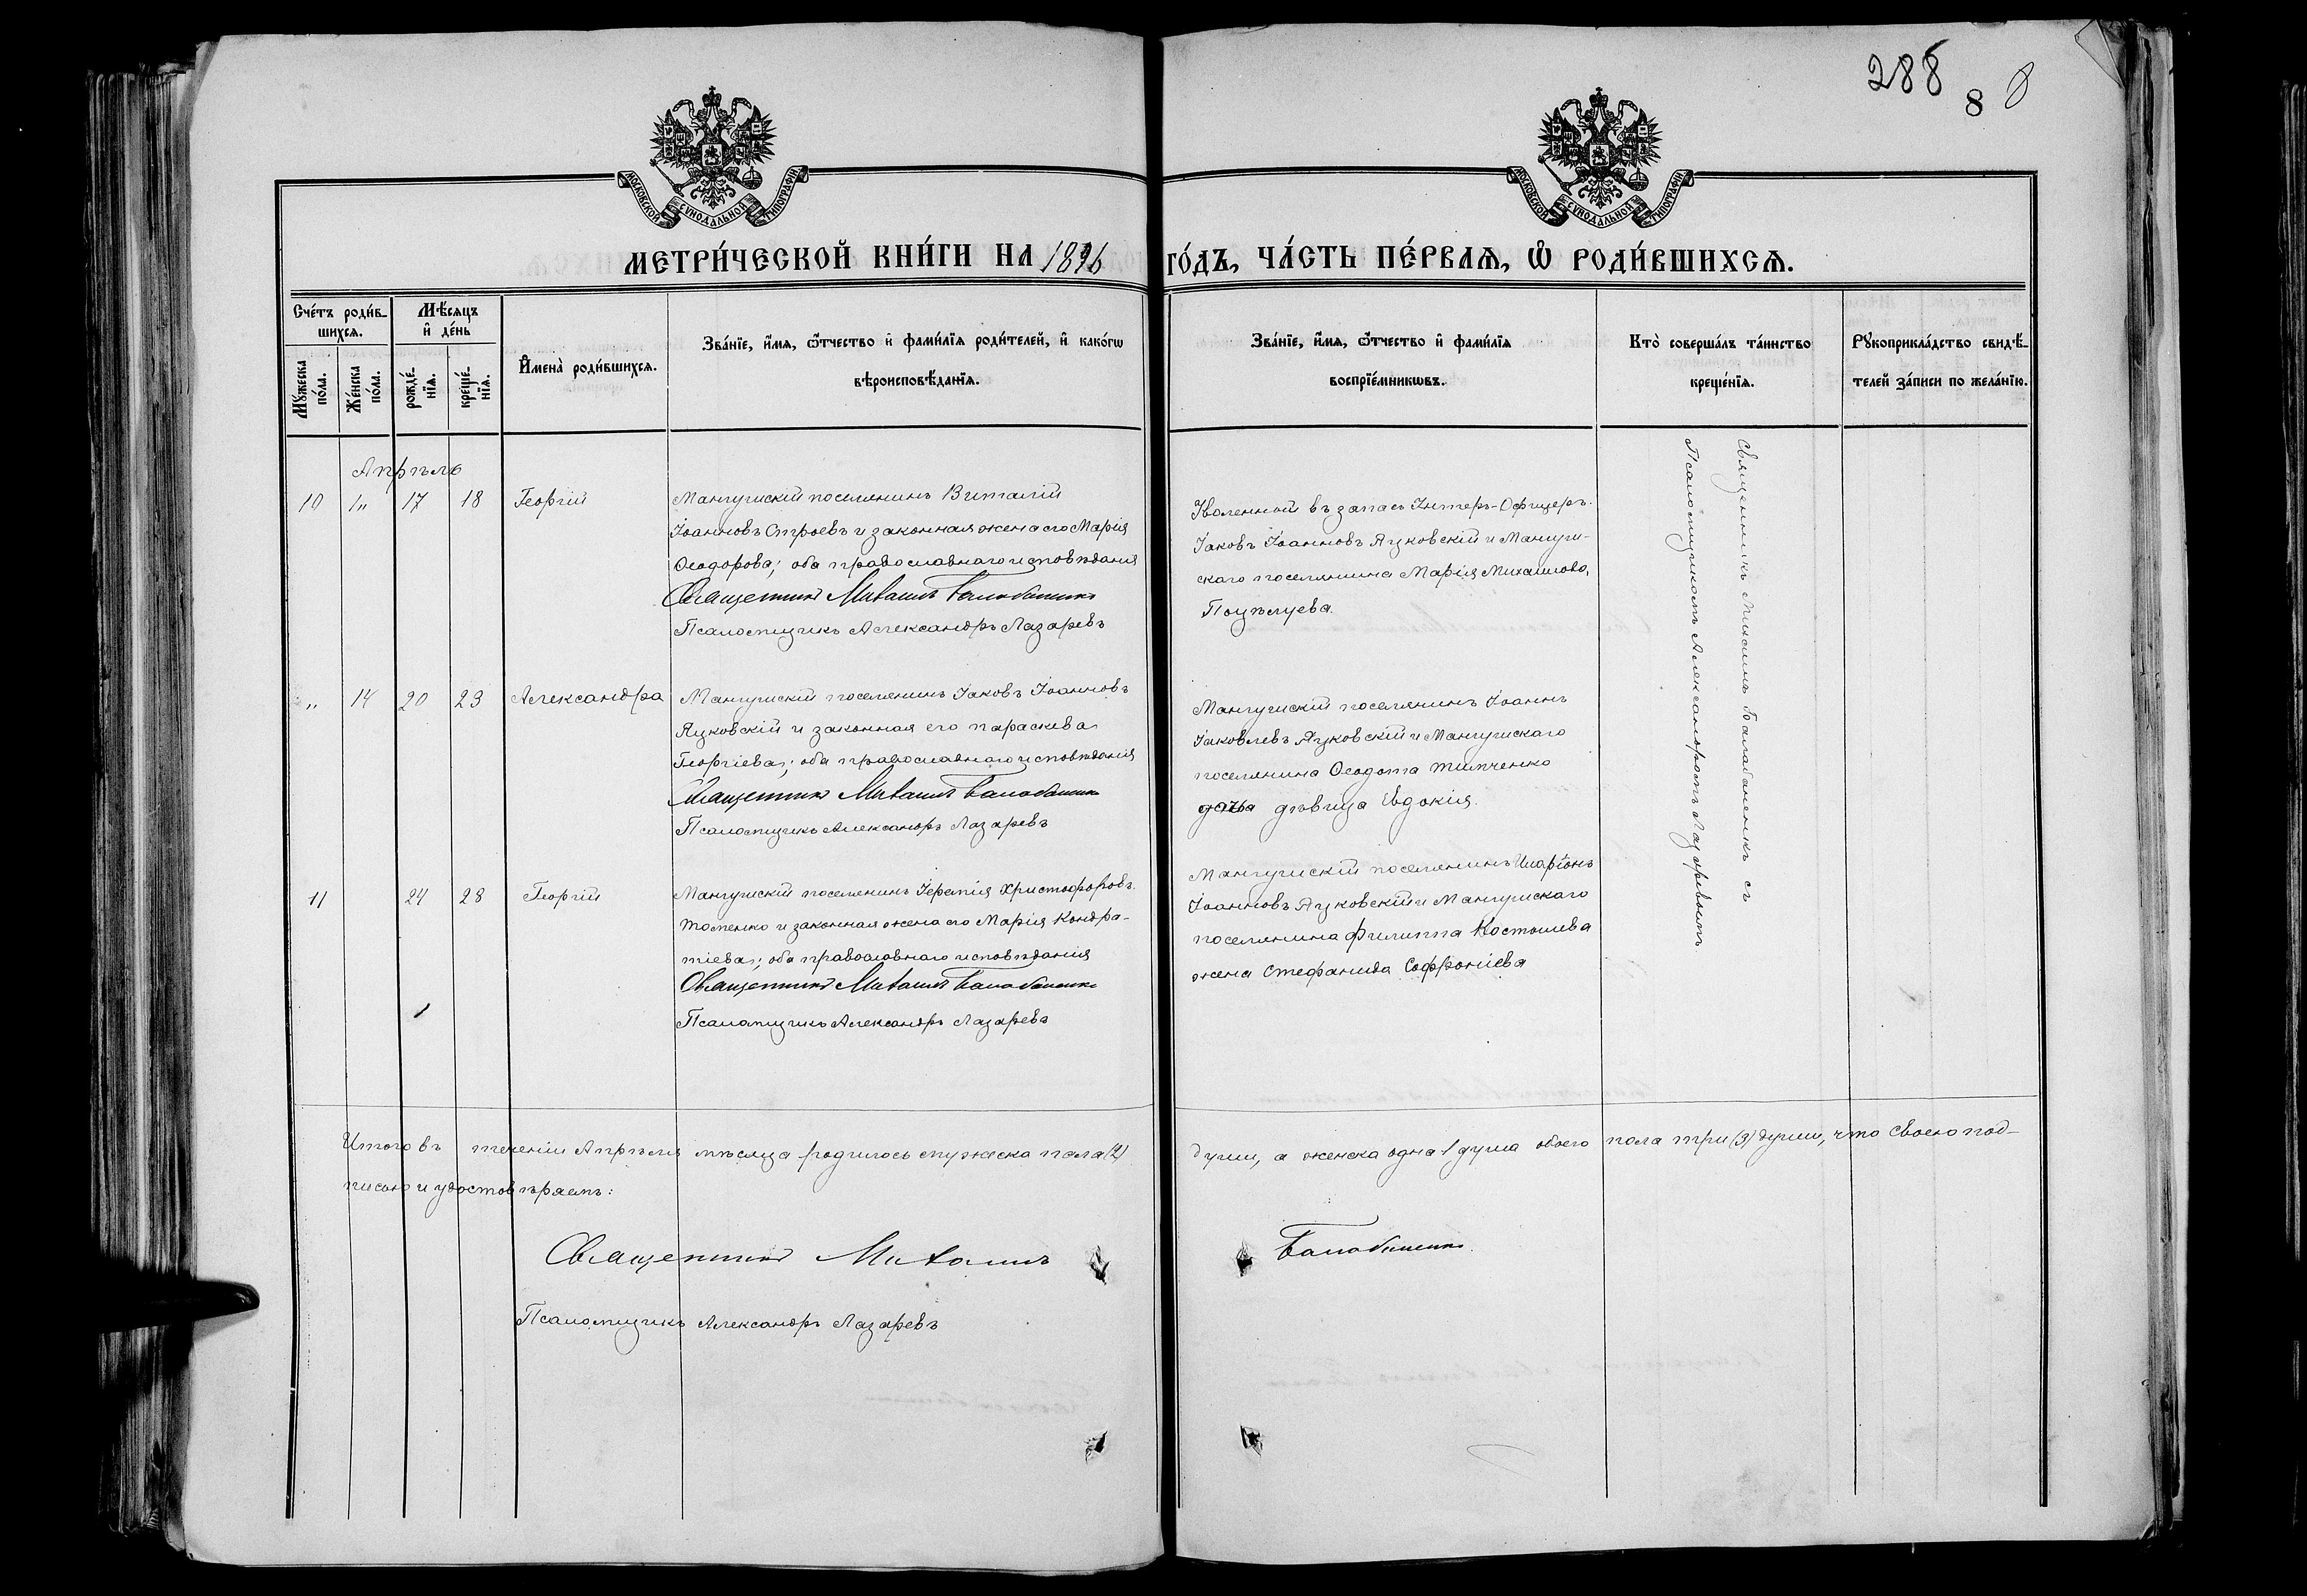 288
8
МОСКОВСКОЙ СѴНОДАЛЬНОЙ ТИПОГРАФІИ
МОСКОВСКОЙ СѴНОДАЛЬНОЙ ТИПОГРАФІИ
МЕТРИ́ЧЕСКОЙ КНИ́ГИ НА 1896 ГО́ДЪ, ЧА́СТЬ ПЕ́РВАѦ, Ѡ РОДИ́ВШИХСѦ.
Счéтъ роди́в-
шихсѧ.
Мꙋ́жеска
по́ла.
Же́нска
по́ла.
Мѣ́сѧцъ
и҆ де́нь
рожде́-
нїѧ.
креще́-
нїѧ.
И҆мена̀ роди́вшихсѧ.
Зва́нїе, и҆́мѧ, ѻ҆́тчество и҆ фами́лїѧ роди́телей, и҆ како́гѡ
вѣроисповѣ́данїѧ.
Зва́нїе, и҆́мѧ, ѻ҆́тчество и҆ фами́лїѧ
воспрїе́мникѡвъ.
Кто̀ соверша́лъ та́инство
креще́нїѧ.
Рꙋкоприкла́дство свидѣ́-
телей за́писи по жела́нїю.
Апрѣль
10 1" 17 18 Георгій
Мангушскій поселянинъ Виталій
Іоанновъ Строевъ и законная жена его Марія
Ѳеодорова; оба православнаго исповѣданія
Священникъ Михаилъ Балабаненко
Псаломщикъ Александръ Лазаревъ
Уволенной въ запасъ Унтеръ-Офицеръ
Іаковъ Іоанновъ Яцковскій и Мангуш-
скаго поселянина Марія Михаилова,
Поцѣлуева.
" 14 20 23 Александра
Мангушскій поселянинъ Іаковъ Іоанновъ
Яцковскій и законная его параскева
Георгіева; оба православнаго исповѣданія
Священникъ Михаилъ Балабаненко
Псаломщикъ Александръ Лазаревъ
Мангушскій поселянинъ Іоаннъ
Іаковлевъ Яцковскій и Мангушскаго
поселянина Ѳеодота Тимченко
дочь дѣвица Евдокія.
11 24 28 Георгій
Мангушскій поселянинъ Іеремія Христофоровъ
Томенко и законная жена его Марія Кондра-
тіева; оба православнаго исповѣданія
Священникъ Михаилъ Балабаненко
Псаломщикъ Александръ Лазаревъ
Мангушскій поселянинъ Иларіонъ
Іоанновъ Яцковскій и Мангушскаго
поселянина Филиппа Костошева
жена Стефанида Софроніева
Священникъ Михаилъ Балабаненко съ
Псаломщикомъ Александромъ Лазаревымъ
Итого въ теченіи Апрѣля мѣсяца родилось мужеска пола (2) души, а женска одна 1 душа обоего пола три (3) души, что своею под-
писью и удостовѣряемъ:
Священникъ Михаилъ Балабаненко
Псаломщикъ Александръ Лазаревъ